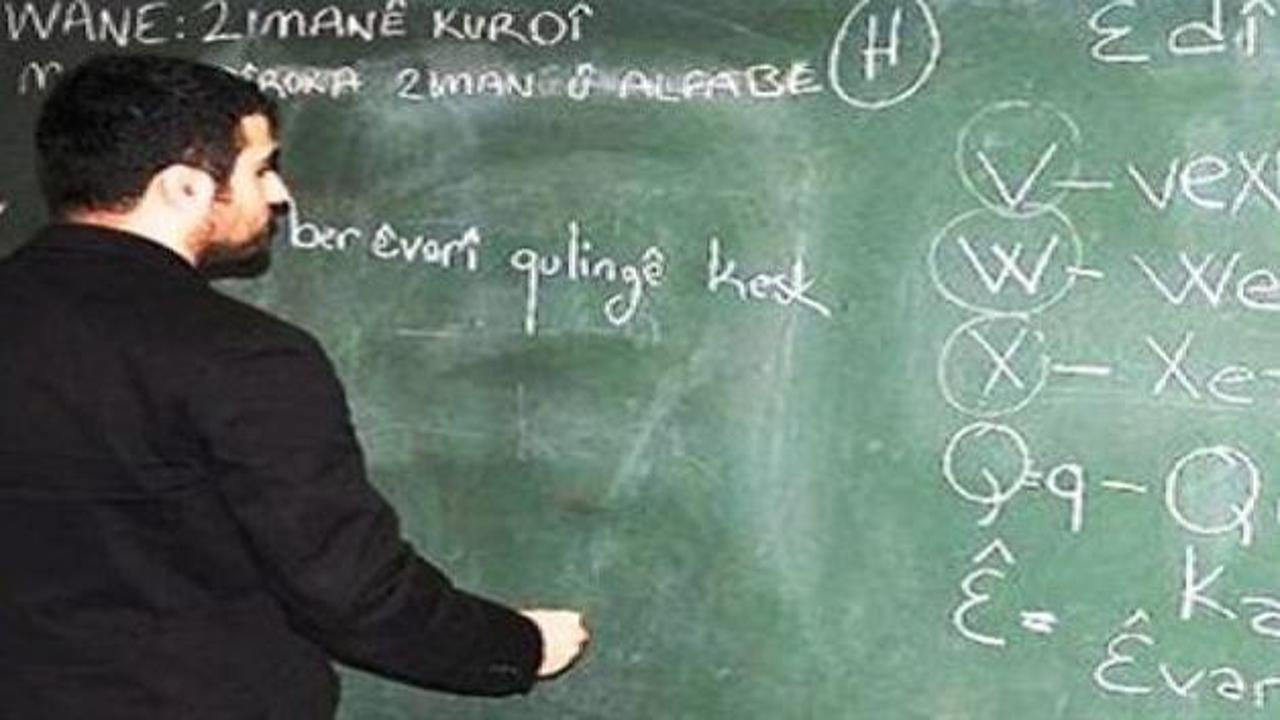 WANE: ZIMANÊ KURDÎ
ZIMAN Û ALFABE
H
ber êvarî qulingê kesk
Edî
V – vex
W – We
X – Xe-
Q = q – Q
Ka
Ê = Êvar